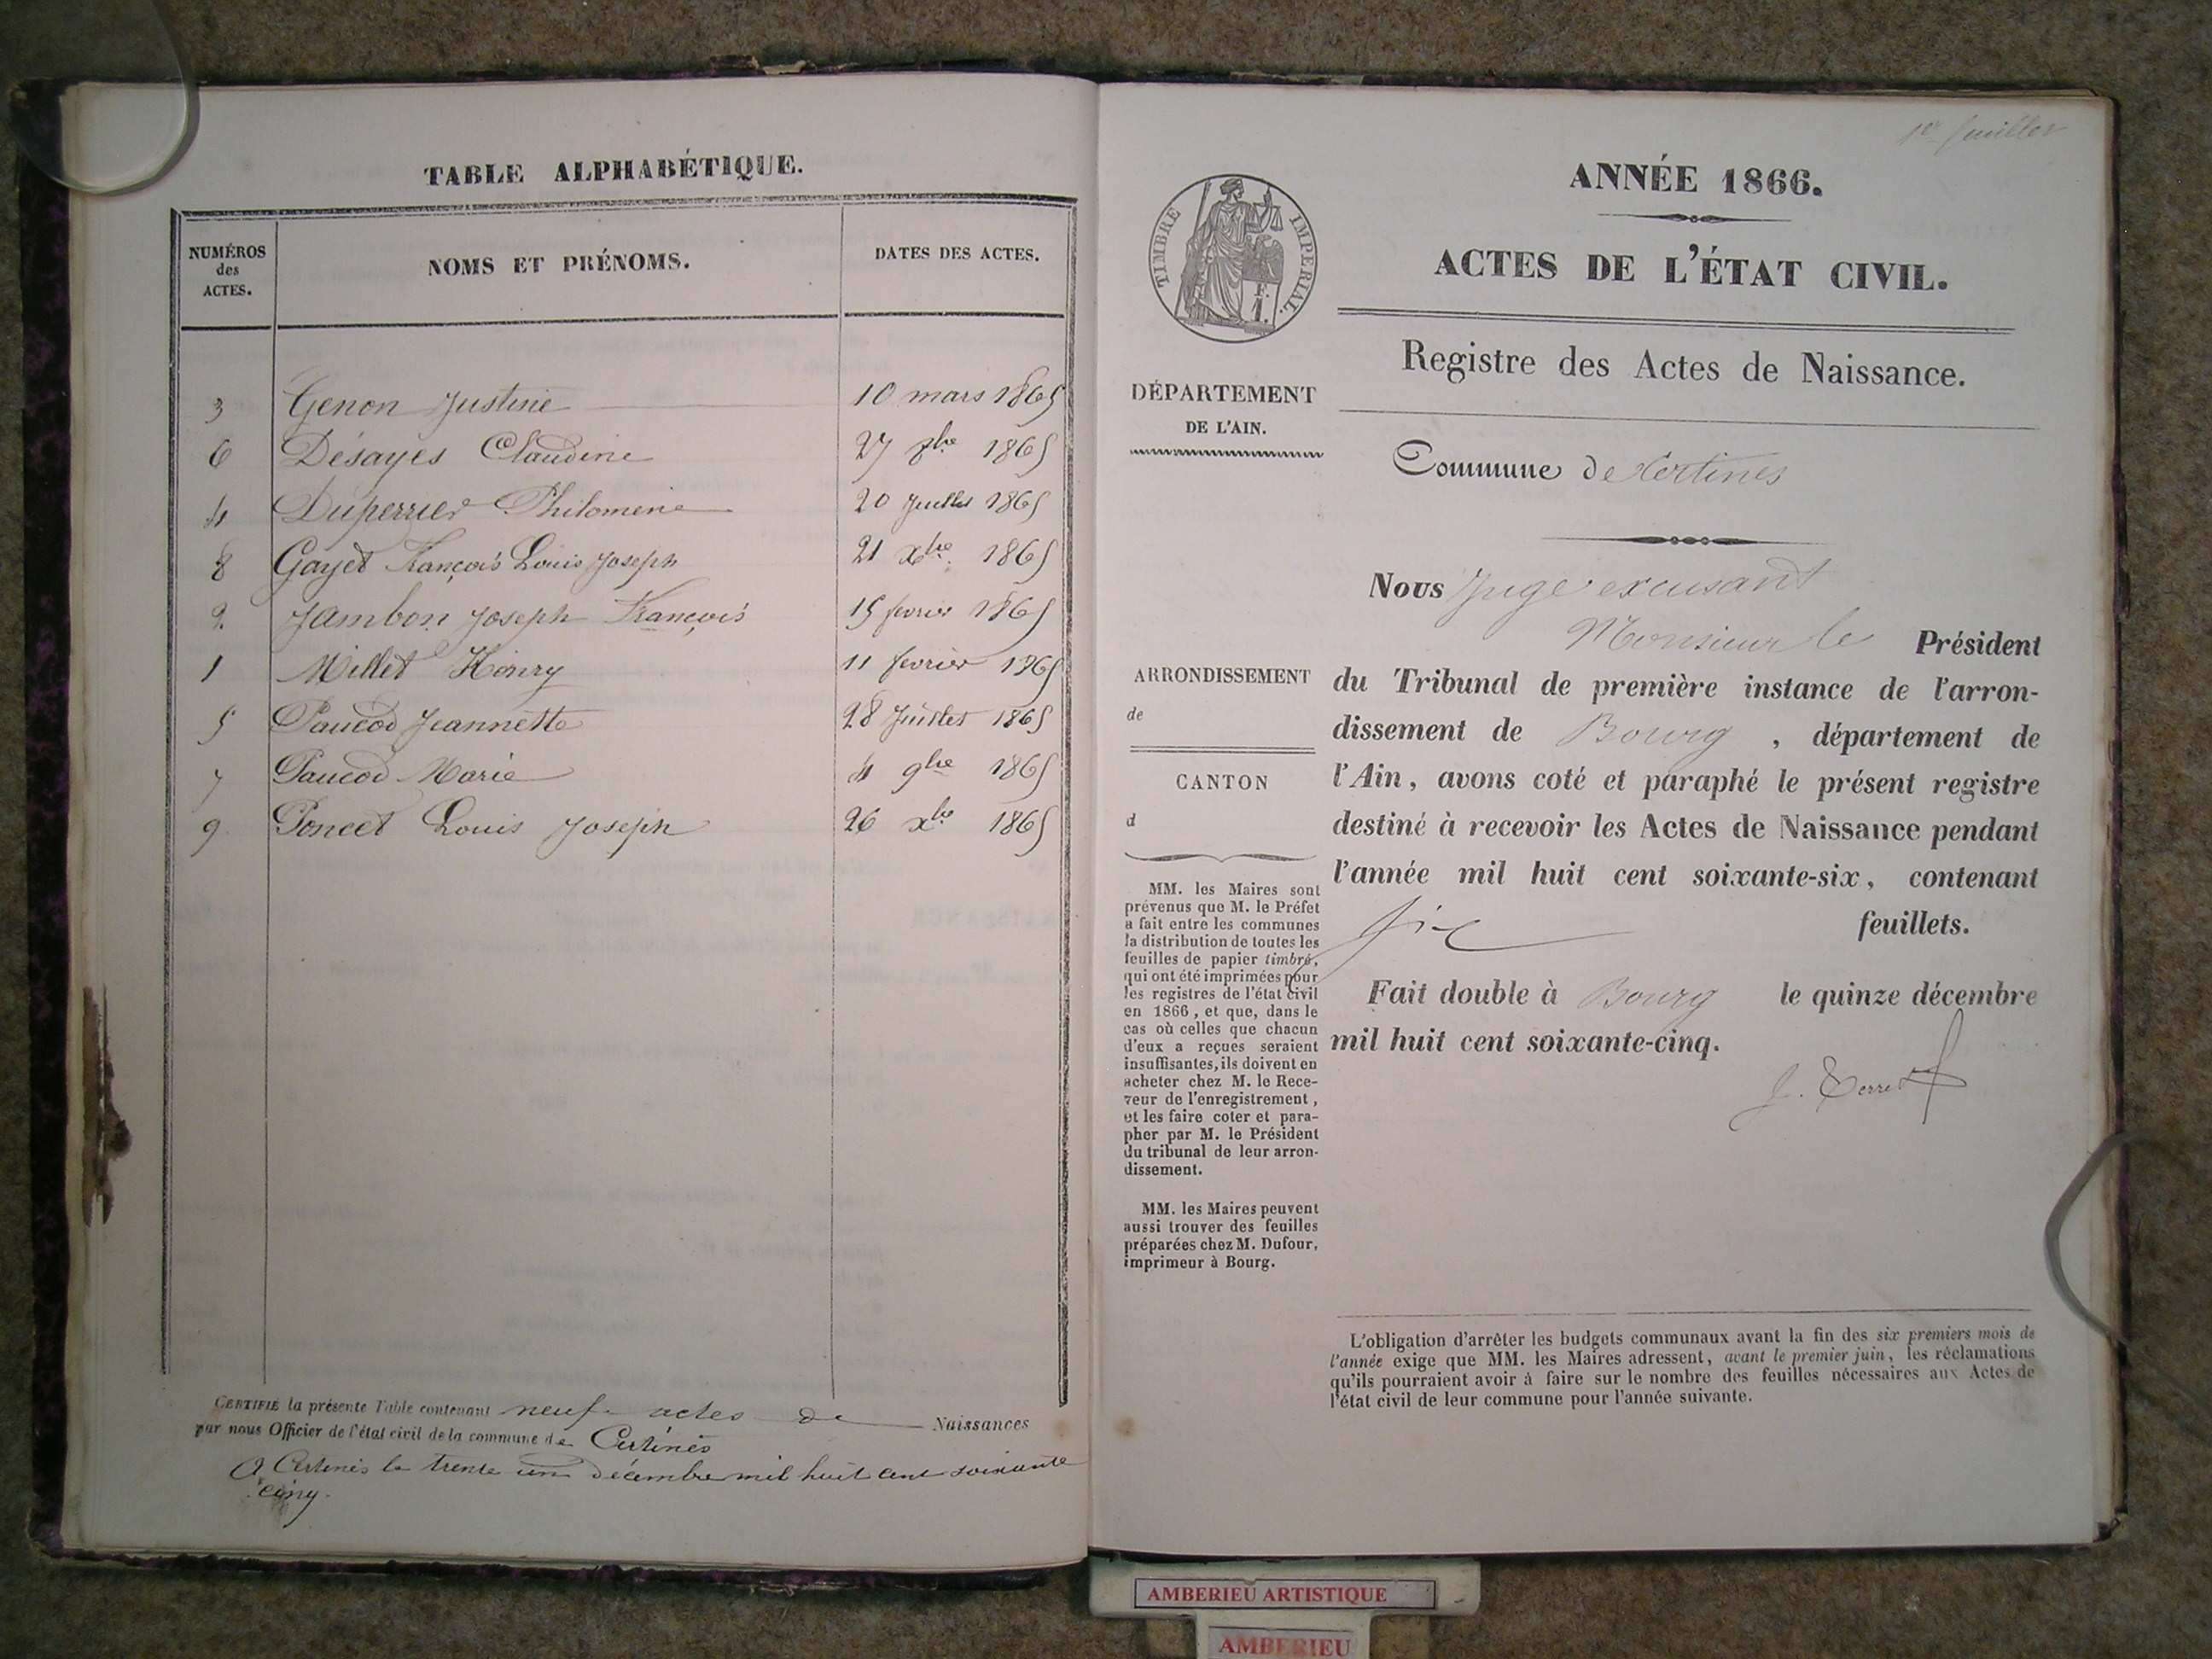 TABLE ALPHABÉTIQUE.
NUMÉROS des ACTES.
NOMS ET PRÉNOMS.
DATES DES ACTES.
3 Genon Justine 10 mars 1865
6 Désayes Claudine 27 1865
4 Duperrier Philomène 20 Juillet 1865
8 Gayet François Louis Joseph 21 xbre 1865
2 Jambon Joseph François 15 février 1865
1 Millet Henry 11 février 1865
5 Paucod Jeannette 28 Juillet 1865
7 Paucod Marie 4 9bre 1865
9 Poncet Louis Joseph 26 xbre 1865
CERTIFIÉ la présente Table contenant neuf actes de Naissances
par nous Officier de l'état civil de la commune de Certines
A Certines le trente un décembre mil huit cent soixante
cinq.
1er feuillet
ANNÉE 1866.
ACTES DE L'ÉTAT CIVIL.
TIMBRE IMPÉRIAL.
Registre des Actes de Naissance.
DÉPARTEMENT
DE L'AIN.
Commune de Certines
Nous Juge excusant
Monsieur le Président
du Tribunal de première instance de l'arron-
dissement de Bourg, département de
l'Ain, avons coté et paraphé le présent registre
destiné à recevoir les Actes de Naissance pendant
l'année mil huit cent soixante-six, contenant
six feuillets.
Fait double à Bourg le quinze décembre
mil huit cent soixante-cinq.
ARRONDISSEMENT
de
CANTON
d
MM. les Maires sont
prévenus que M. le Préfet
a fait entre les communes
la distribution de toutes les
feuilles de papier timbré,
qui ont été imprimées pour
les registres de l'état civil
en 1866, et que, dans le
cas où celles que chacun
d'eux a reçues seraient
insuffisantes, ils doivent en
acheter chez M. le Rece-
veur de l'enregistrement,
et les faire coter et para-
pher par M. le Président
du tribunal de leur arron-
dissement.
MM. les Maires peuvent
aussi trouver des feuilles
préparées chez M. Dufour,
imprimeur à Bourg.
L'obligation d'arrêter les budgets communaux avant la fin des six premiers mois de
l'année exige que MM. les Maires adressent, avant le premier juin, les réclamations
qu'ils pourraient avoir à faire sur le nombre des feuilles nécessaires aux Actes de
l'état civil de leur commune pour l'année suivante.
AMBERIEU ARTISTIQUE
AMBERIEU